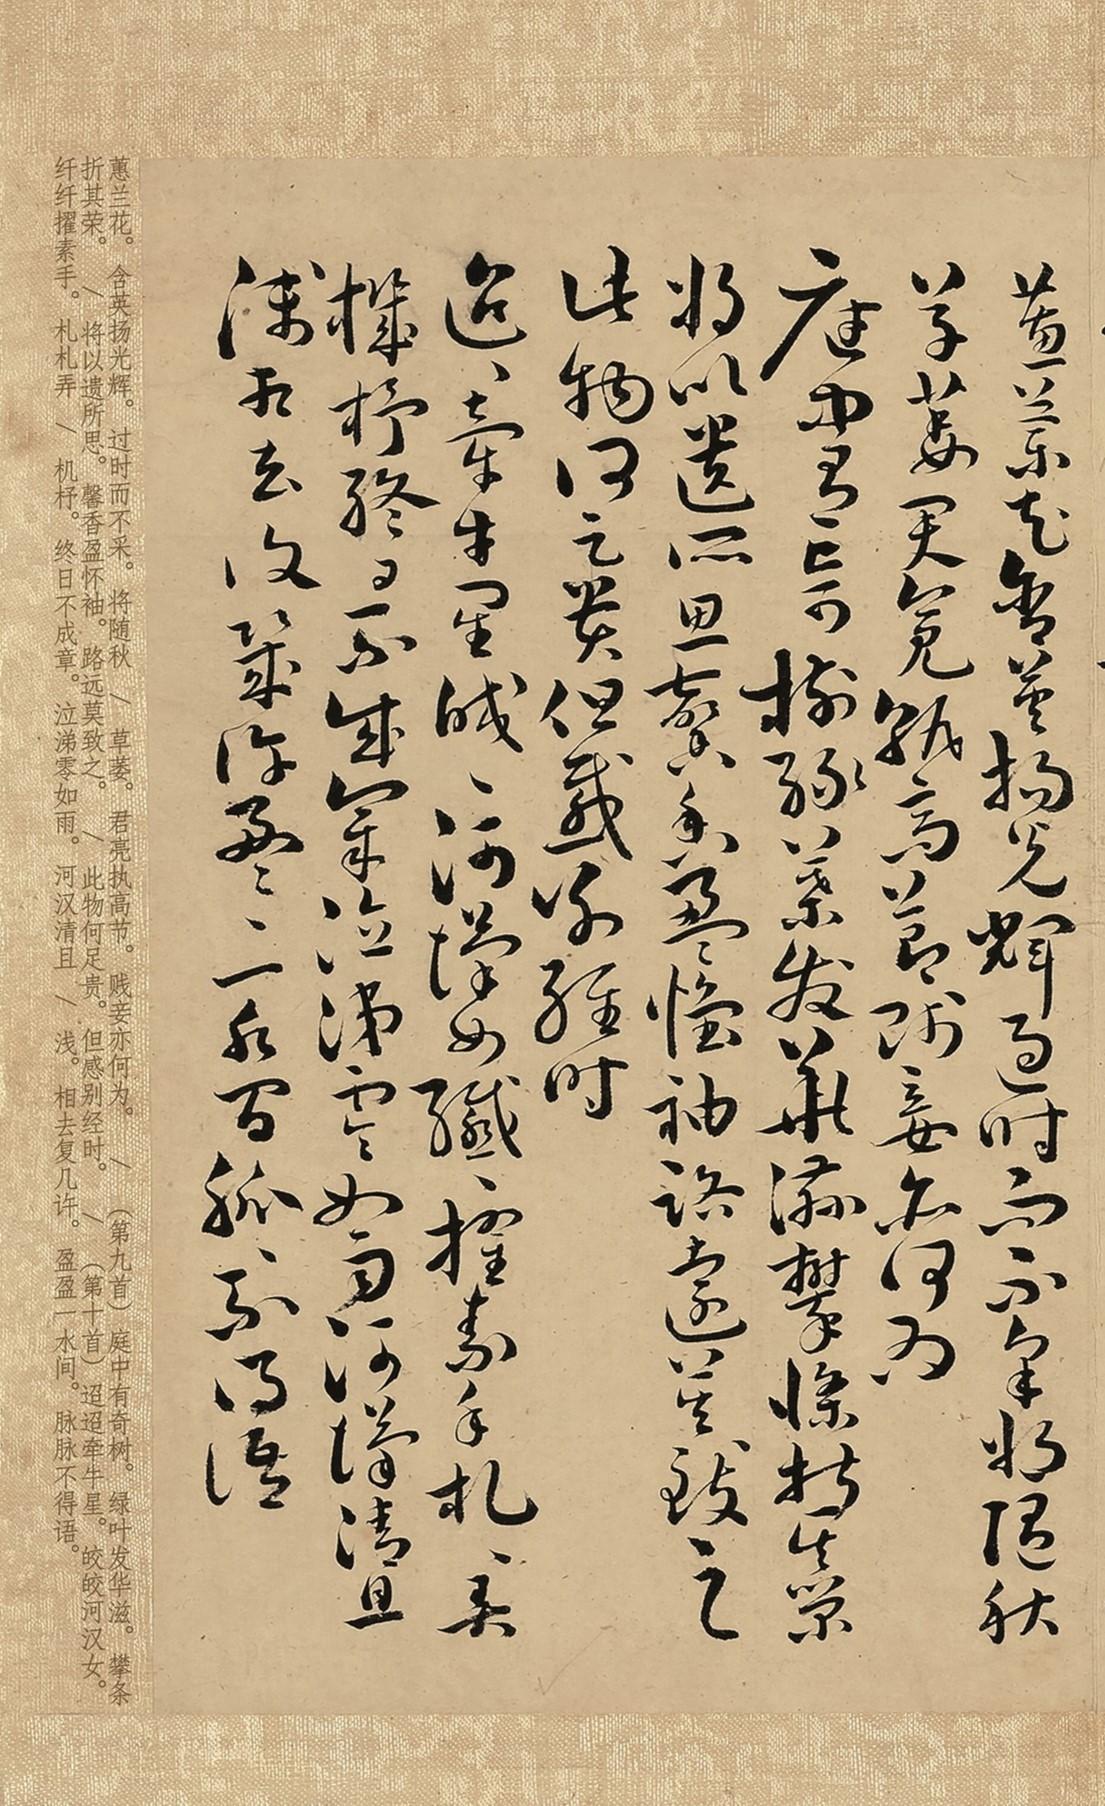 蕙蘭花含英揚光輝過時而不采将隨秋
草萎君亮執高節賤妾亦何為
庭中有奇樹緑葉發華滋攀條折其榮
將以遺所思馨香盈懷袖路遠莫致之
此物何足貴但感别經時
迢〻牽牛星皎〻河漢女纖〻擢素手札〻弄
機杼終日不成章泣涕零如雨河漢清且
淺相去復幾許盈〻一水間脈〻不得語
蕙兰花。含英扬光辉。过时而不采。将随秋 / 草萎。君亮执高节。贱妾亦何为。 / （第九首）庭中有奇树。绿叶发华滋。攀条
折其荣。 / 将以遗所思。馨香盈怀袖。路远莫致之。 / 此物何足贵。但感别经时。 / （第十首）迢迢牵牛星。皎皎河汉女。
纤纤擢素手。札札弄 / 机杼。终日不成章。泣涕零如雨。河汉清且 / 浅。相去复几许。盈盈一水间。脉脉不得语。